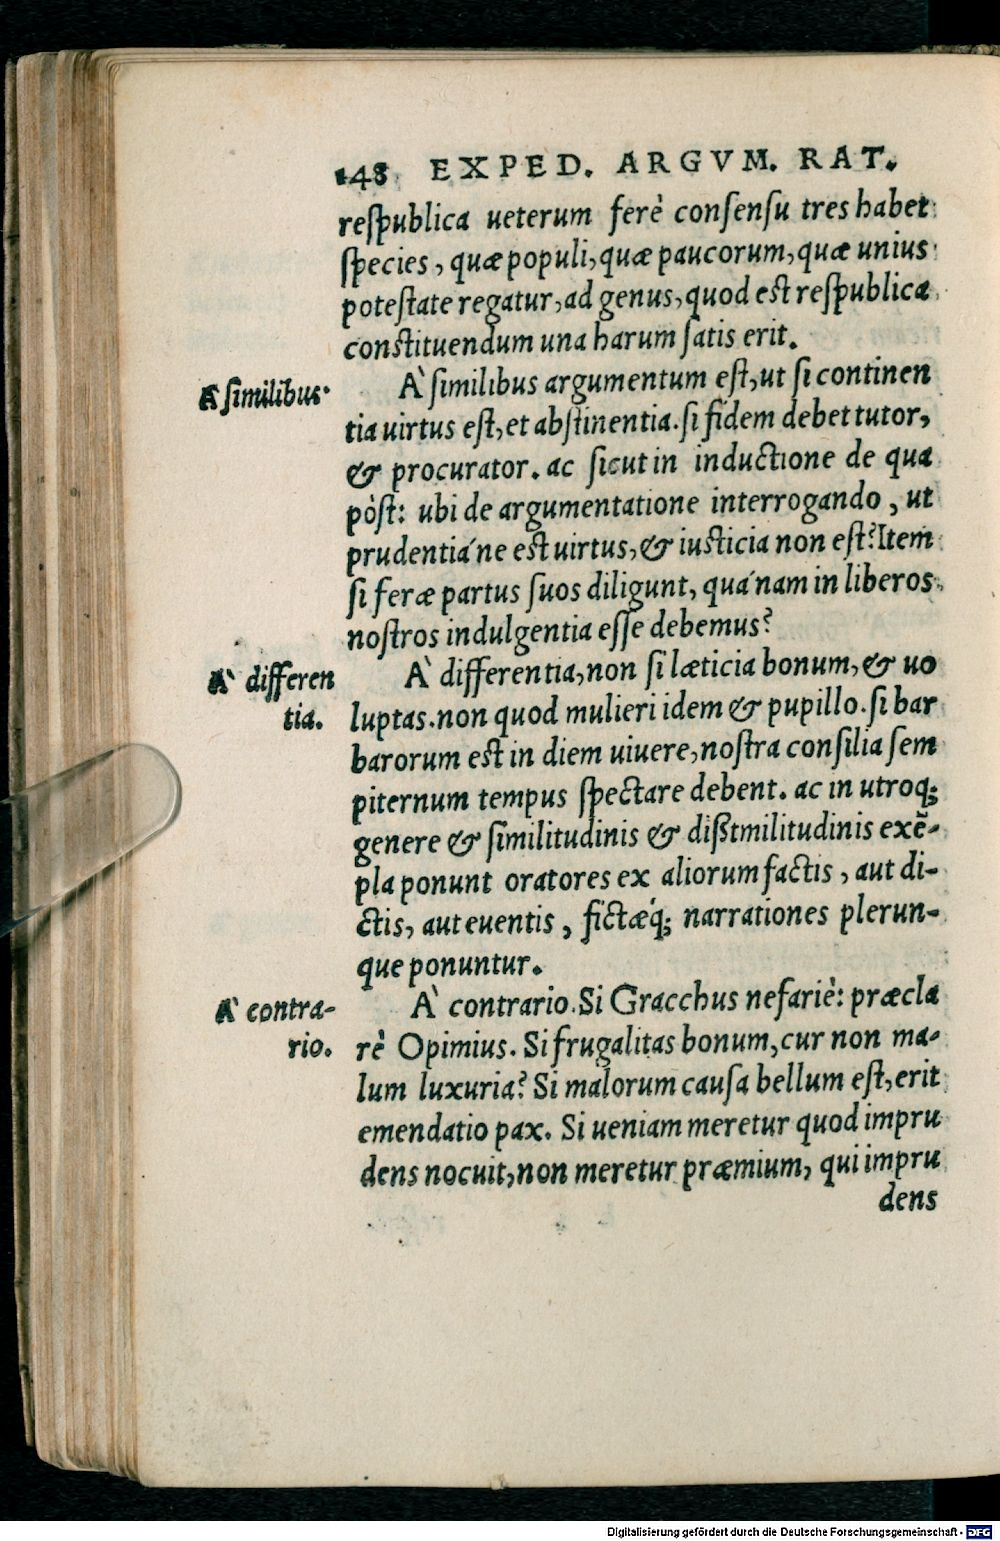 148 EXPED. ARGVM. RAT.
respublica ueterum ferè consensu tres habet
species, quæ populi, quæ paucorum, quæ unius
potestate regatur, ad genus, quod est respublica
constituendum una harum satis erit.
A similibus.
À similibus argumentum est, ut si continen
tia uirtus est, et abstinentia. si fidem debet tutor,
& procurator. ac sicut in inductione de qua
pòst: ubi de argumentatione interrogando, ut
prudentiáne est uirtus, & iusticia non est? Item
si feræ partus suos diligunt, quánam in liberos
nostros indulgentia esse debemus?
À differen
tia.
À differentia, non si læticia bonum, & uo
luptas. non quod mulieri idem & pupillo. si bar
barorum est in diem uiuere, nostra consilia sem
piternum tempus spectare debent. ac in utroq;
genere & similitudinis & dißtmilitudinis exē-
pla ponunt oratores ex aliorum factis, aut di-
ctis, aut euentis, fictæq́; narrationes plerun-
que ponuntur.
À contra-
rio.
À contrario. Si Gracchus nefariè: præcla
rè Opimius. Si frugalitas bonum, cur non ma-
lum luxuria? Si malorum causa bellum est, erit
emendatio pax. Si ueniam meretur quod impru
dens nocuit, non meretur præmium, qui impru
dens
Digitalisierung gefördert durch die Deutsche Forschungsgemeinschaft - DFG